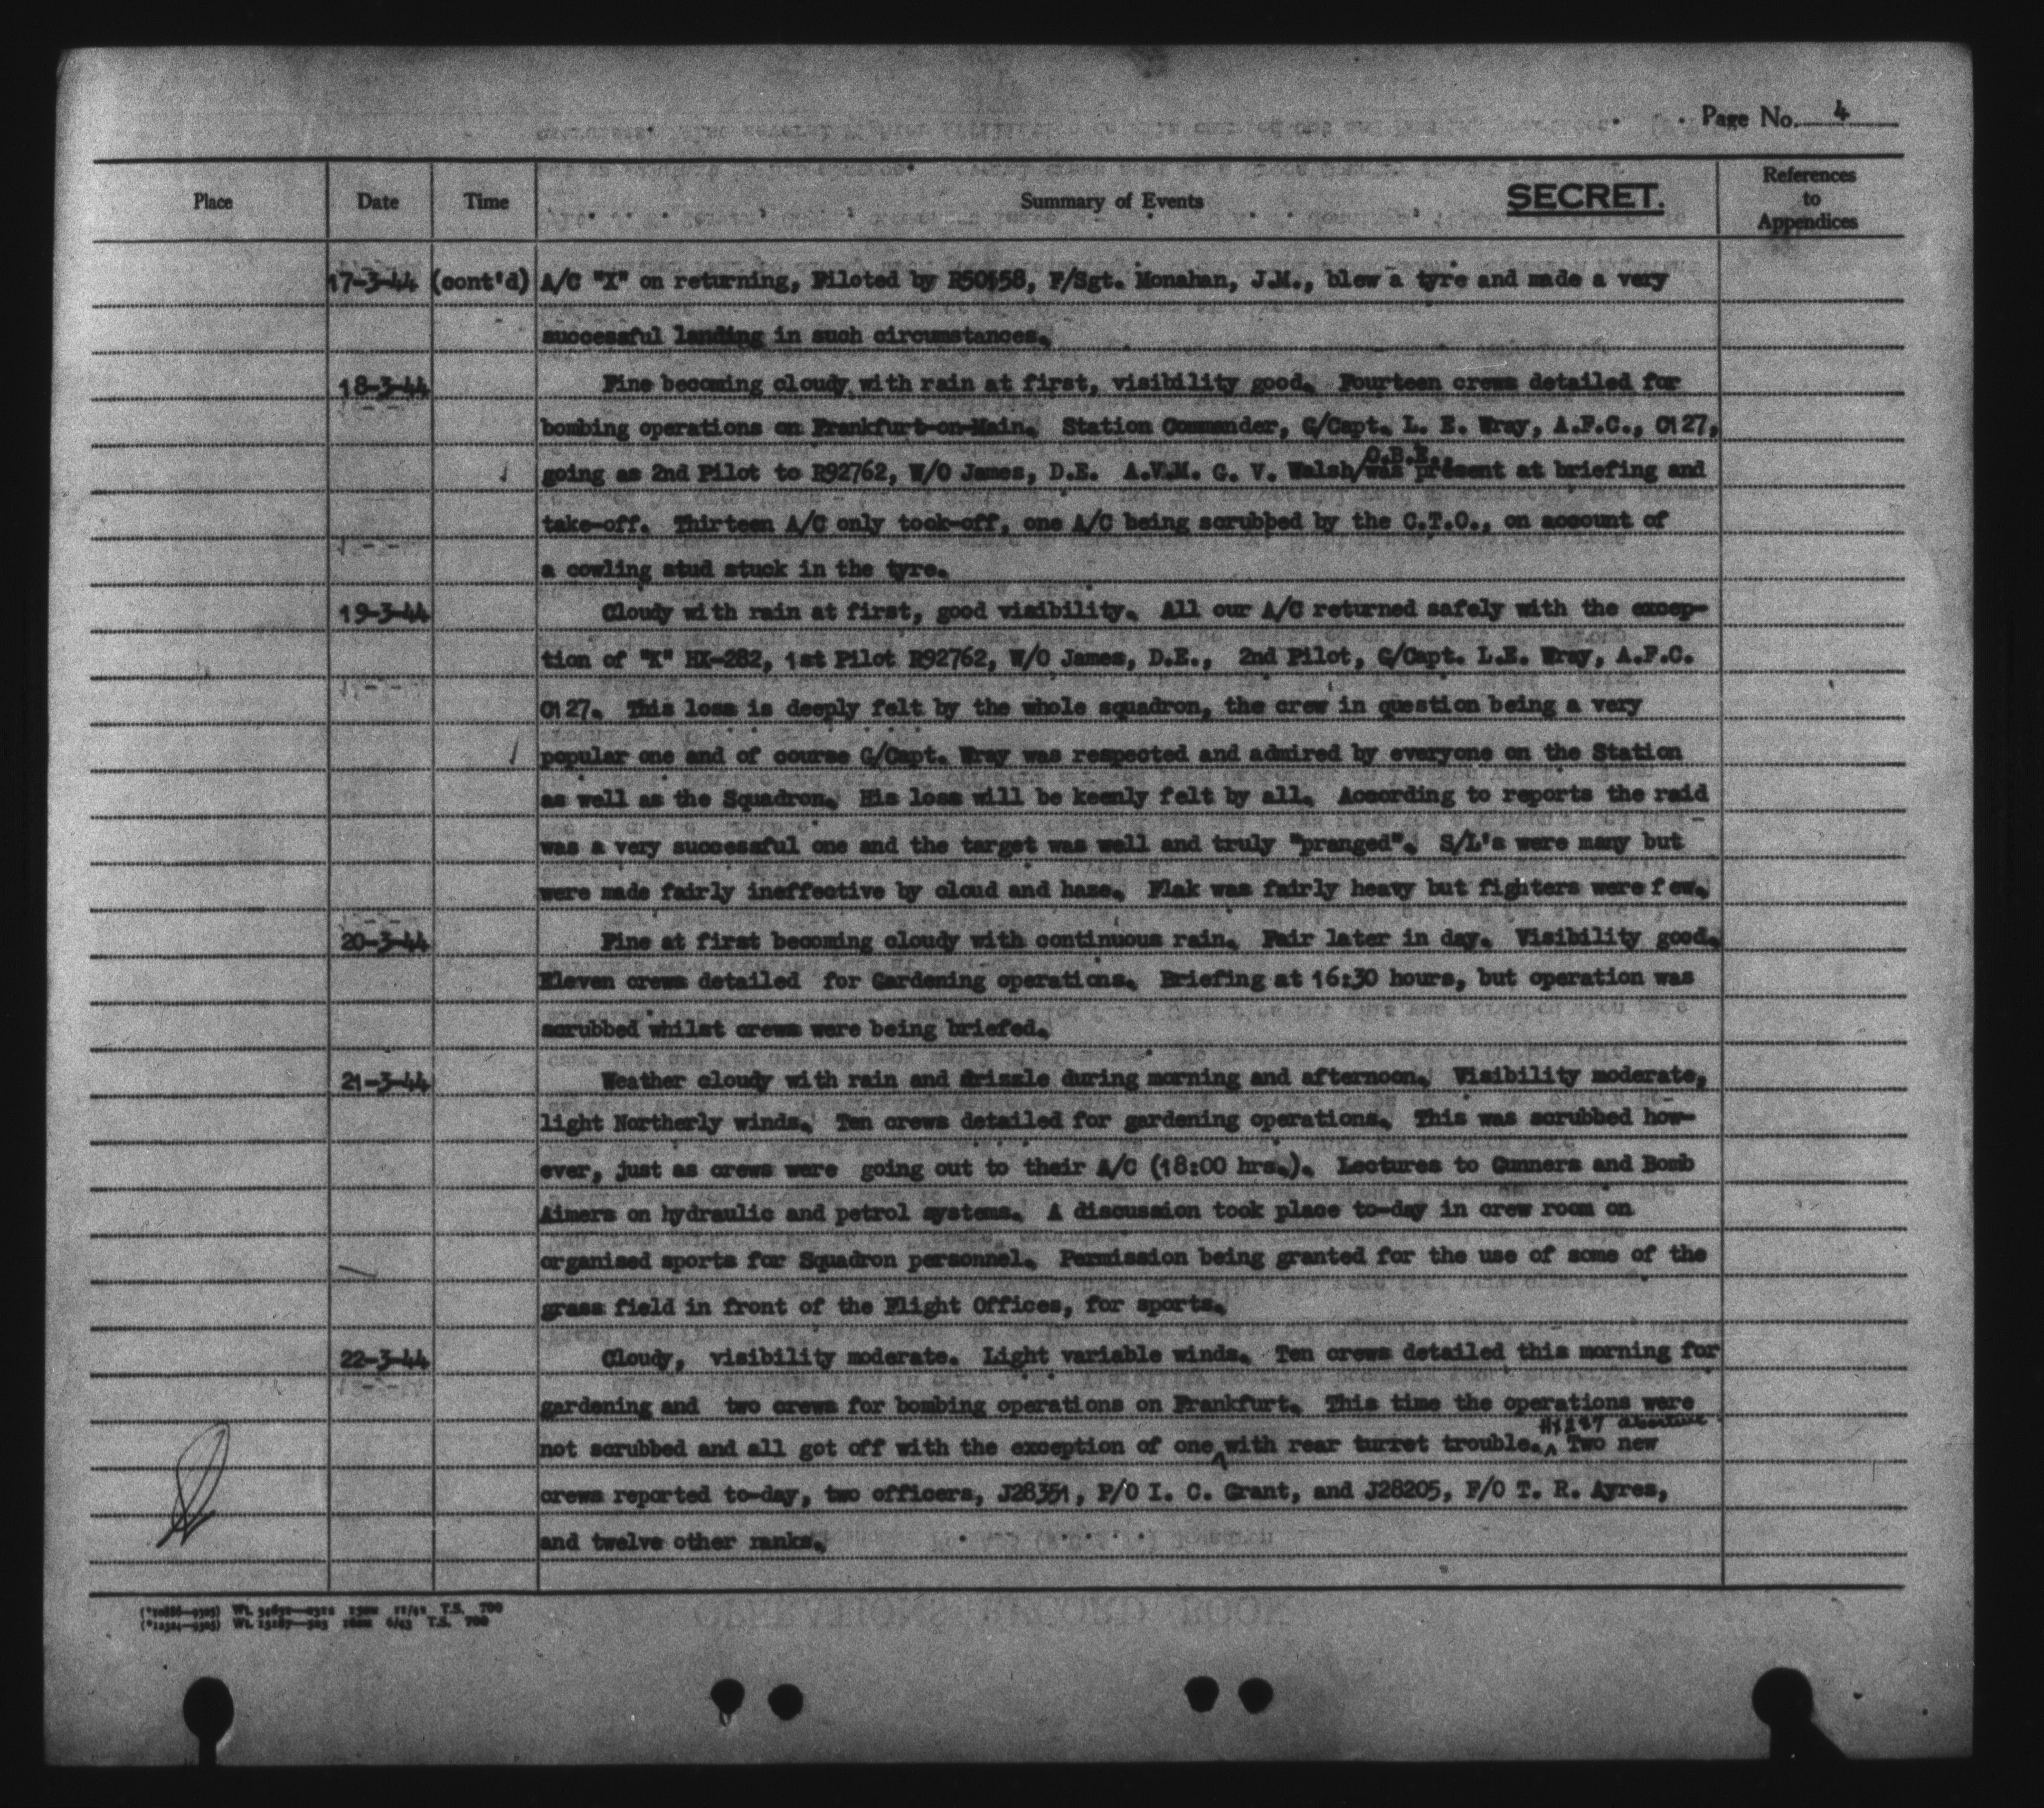 Page No. 4
Place Date Time Summary of Events SECRET. References to Appendices
17-3-44 (cont'd) A/C "X" on returning, Piloted by F/Sgt. Monahan, J.M., blew a tyre and made a very
successful landing in such circumstances.
18-3-44 Fine becoming cloudy with rain at first, visibility good. Fourteen crews detailed for
bombing operations on Frankfurt-on-Main. Station Commander, G/Capt. L. E. Wray, A.F.C., C127,
O.B.E.,
going as 2nd Pilot to R92762, W/O James, D.E. A.V.M. G. V. Walsh/was present at briefing and
take-off. Thirteen A/C only took-off, one A/C being scrubbed by the C.T.O., on account of
a cowling stud stuck in the tyre.
19-3-44 Cloudy with rain at first, good visibility. All our A/C returned safely with the excep-
tion of "X" HX-282, 1st Pilot R92762, W/O James, D.E., 2nd Pilot, G/Capt. L.E. Wray, A.F.C.
C127. This loss is deeply felt by the whole squadron, the crew in question being a very
popular one and of course G/Capt. Wray was respected and admired by everyone on the Station
as well as the Squadron. His loss will be keenly felt by all. According to reports the raid
was a very successful one and the target was well and truly "pranged". S/L's were many but
were made fairly ineffective by cloud and haze. Flak was fairly heavy but fighters were few.
20-3-44 Fine at first becoming cloudy with continuous rain. Fair later in day. Visibility good.
Eleven crews detailed for Gardening operations. Briefing at 16:30 hours, but operation was
scrubbed whilst crews were being briefed.
21-3-44 Weather cloudy with rain and drizzle during morning and afternoon. Visibility moderate,
light Northerly winds. Ten crews detailed for gardening operations. This was scrubbed how-
ever, just as crews were going out to their A/C (18:00 hrs.). Lectures to Gunners and Bomb
Aimers on hydraulic and petrol systems. A discussion took place to-day in crew room on
organised sports for Squadron personnel. Permission being granted for the use of some of the
grass field in front of the Flight Offices, for sports.
22-3-44 Cloudy, visibility moderate. Light variable winds. Ten crews detailed this morning for
gardening and two crews for bombing operations on Frankfurt. This time the operations were
not scrubbed and all got off with the exception of one with rear turret trouble. Two new
crews reported to-day, two officers, J28351, P/O I. C. Grant, and J28205, F/O T. R. Ayres,
and twelve other ranks.
T.S. 700
T.S. 700